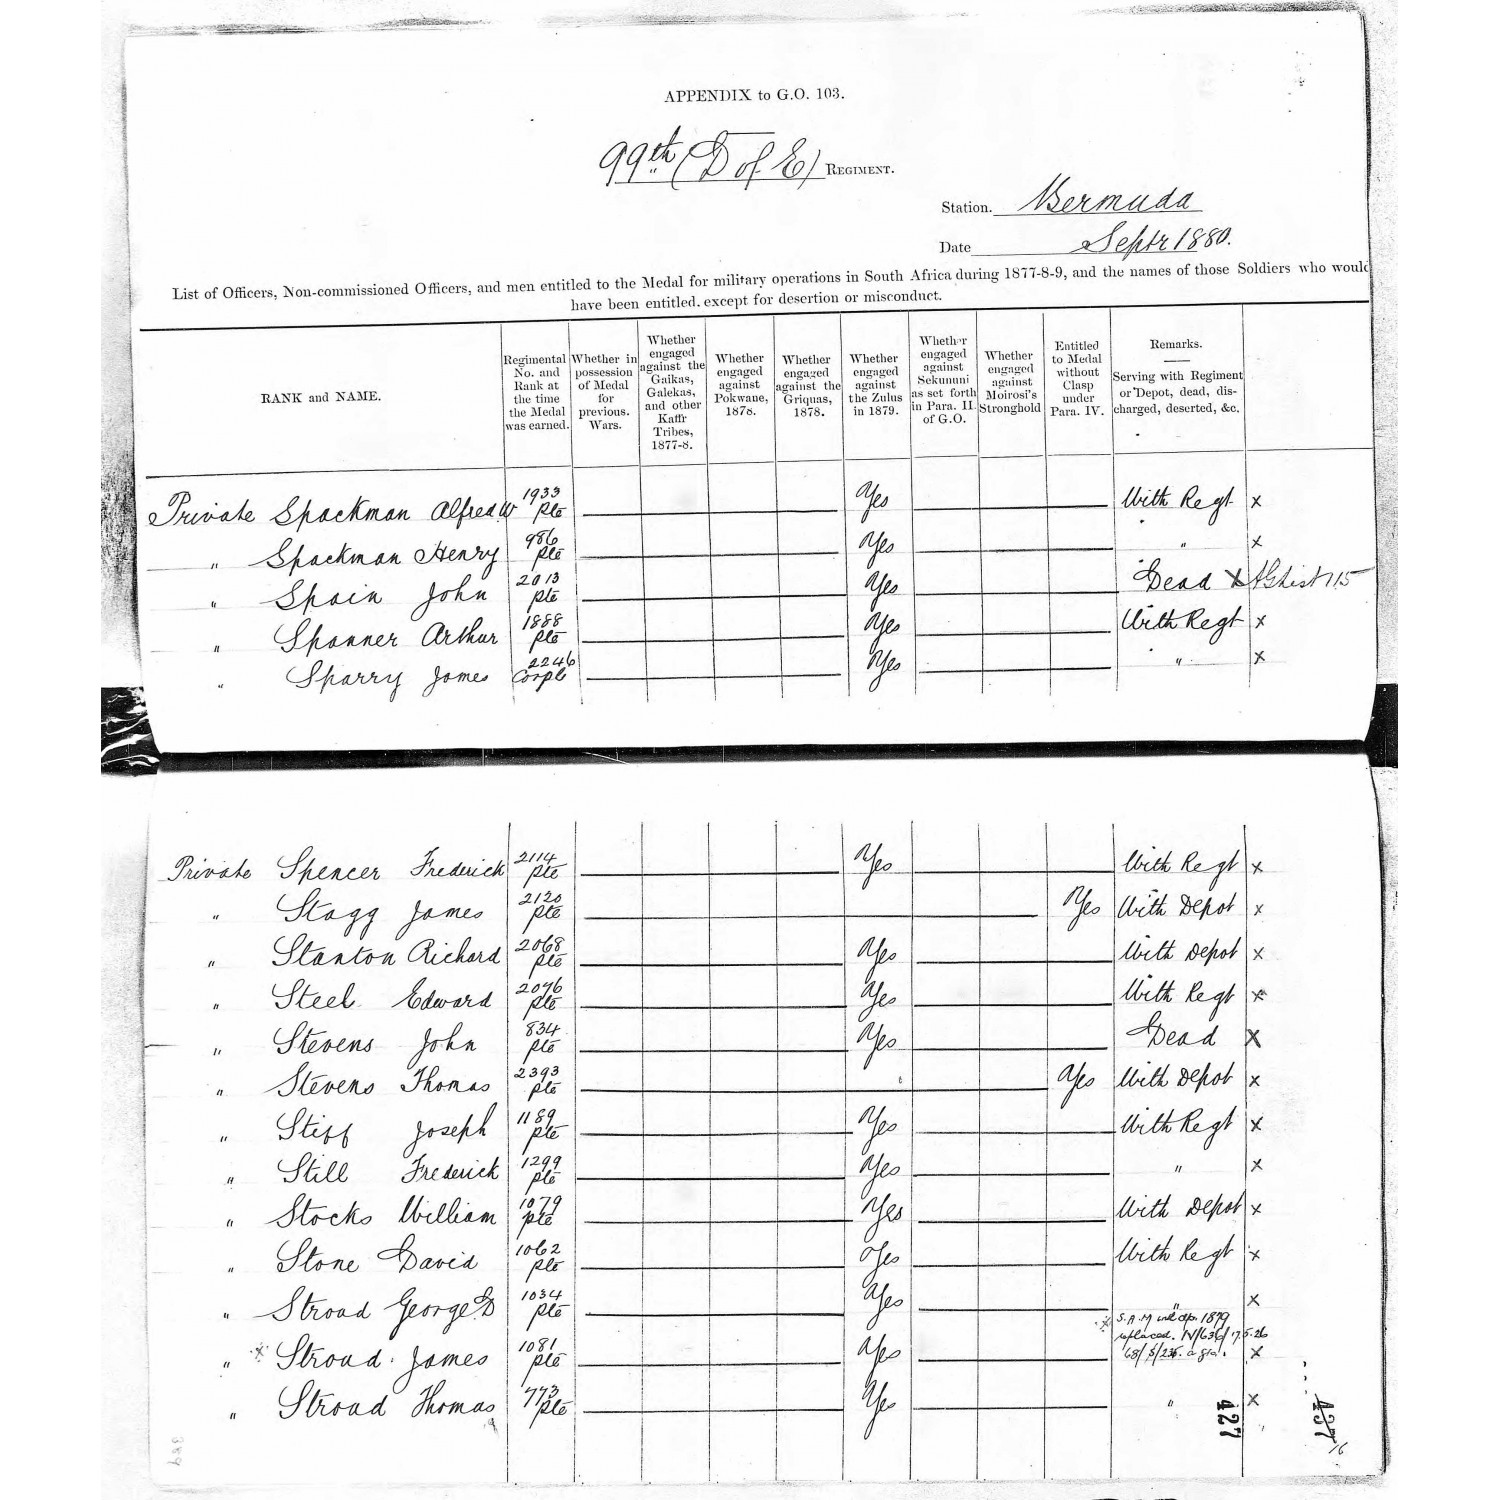 APPENDIX to G.O. 103.
99th (D of E) REGIMENT.
Station. Bermuda
Date Septr 1880.
List of Officers, Non-commissioned Officers, and men entitled to the Medal for military operations in South Africa during 1877-8-9, and the names of those Soldiers who would
have been entitled. except for desertion or misconduct.
RANK and NAME.
Regimental No. and Rank at the time the Medal was earned.
Whether in possession of Medal for previous. Wars.
Whether engaged against the Gaikas, Galekas, and other Kaffr Tribes, 1877-8.
Whether engaged against Pokwane, 1878.
Whether engaged against the Griquas, 1878.
Whether engaged against the Zulus in 1879.
Whether engaged against Sekununi as set forth in Para. II. of G.O.
Whether engaged against Moirosi's Stronghold
Entitled to Medal without Clasp under Para. IV.
Remarks.
Serving with Regiment or Depot, dead, discharged, deserted, &c.
Private Spackman Alfred W 1933 Pte Yes With Regt x
" Spackman Henry 986 Pte Yes " x
" Spain John 2013 Pte Yes Dead x AG List 115
" Spanner Arthur 1888 Pte Yes With Regt x
" Sparry James 2246 Corpl Yes " x
Private Spencer Frederick 2114 Pte Yes With Regt x
" Stagg James 2120 Pte Yes With Depot x
" Stanton Richard 2068 Pte Yes With Depot x
" Steel Edward 2096 Pte Yes With Regt x
" Stevens John 834 Pte Yes Dead x
" Stevens Thomas 2393 Pte Yes With Depot x
" Stiff Joseph 1189 Pte Yes With Regt x
" Still Frederick 1299 Pte Yes " x
" Stocks William 1079 Pte Yes With Depot x
" Stone David 1062 Pte Yes With Regt x
" Stroud George D 1034 Pte Yes " x
x S.A.M 1879
replaced.
" x Stroud James 1081 Pte Yes x
" Stroud Thomas 773 Pte Yes " x
427
437
16